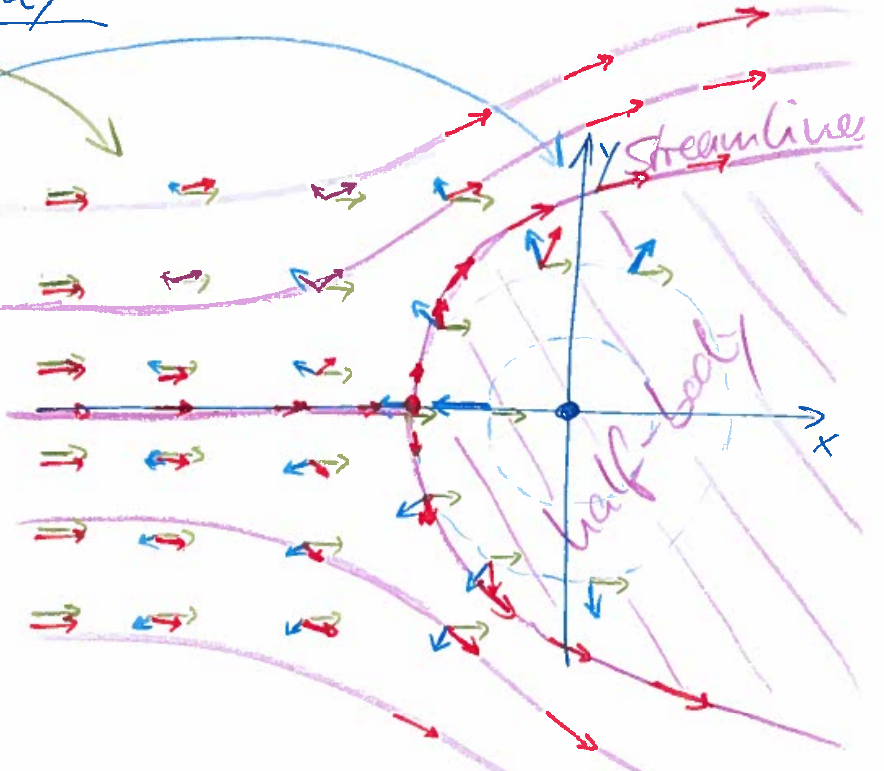 y
streamlines
half-body
x